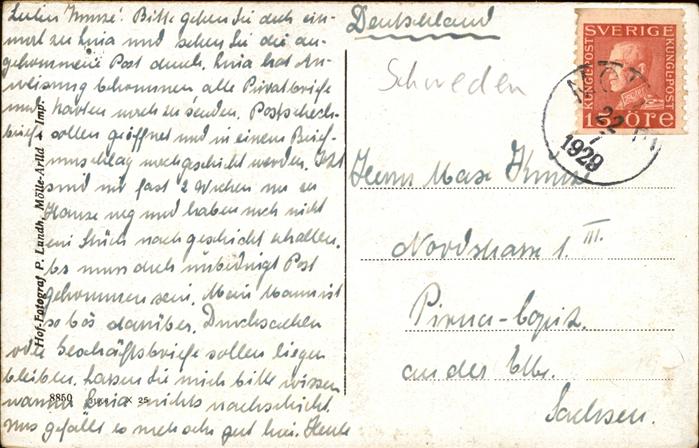 Lieber Kunze! Bitte gehen Sie doch ein-
mal zu Luia und sehen Sie die an-
gekommene Post durch. Luia hat An-
weisung bekommen alle Privatbriefe
und Karten nach zu senden. Postscheck-
briefe sollen geöffnet und in einem Brief-
umschlag nachgeschickt werden. Jetzt
sind wir fast 2 Wochen von zu
Hause weg und haben noch nicht
ein Stück nachgeschickt erhalten.
Es muss doch unbedingt Post
gekommen sein. Mein Mann ist
so bös darüber. Drucksachen
oder Geschäftsbriefe sollen liegen
bleiben. Lassen Sie mich bitte wissen
warum Luia nichts nachschickt.
Uns gefällt es noch sehr gut hier. Heute
Hof-Fotograf P. Lundh, Mölle-Arild Imp.
8850 X 25
Deutschland
Schweden
SVERIGE
KUNGL·POST
KUNGL·POST
15 ÖRE
22
7
1929
Herrn Max Kunze
Nordstrasse 1 III.
Pirna-Copitz
an der Elbe.
Sachsen.